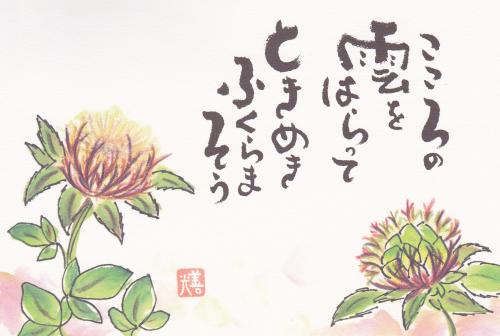 こころの
雲を
はらって
ときめき
ふくらま
そう